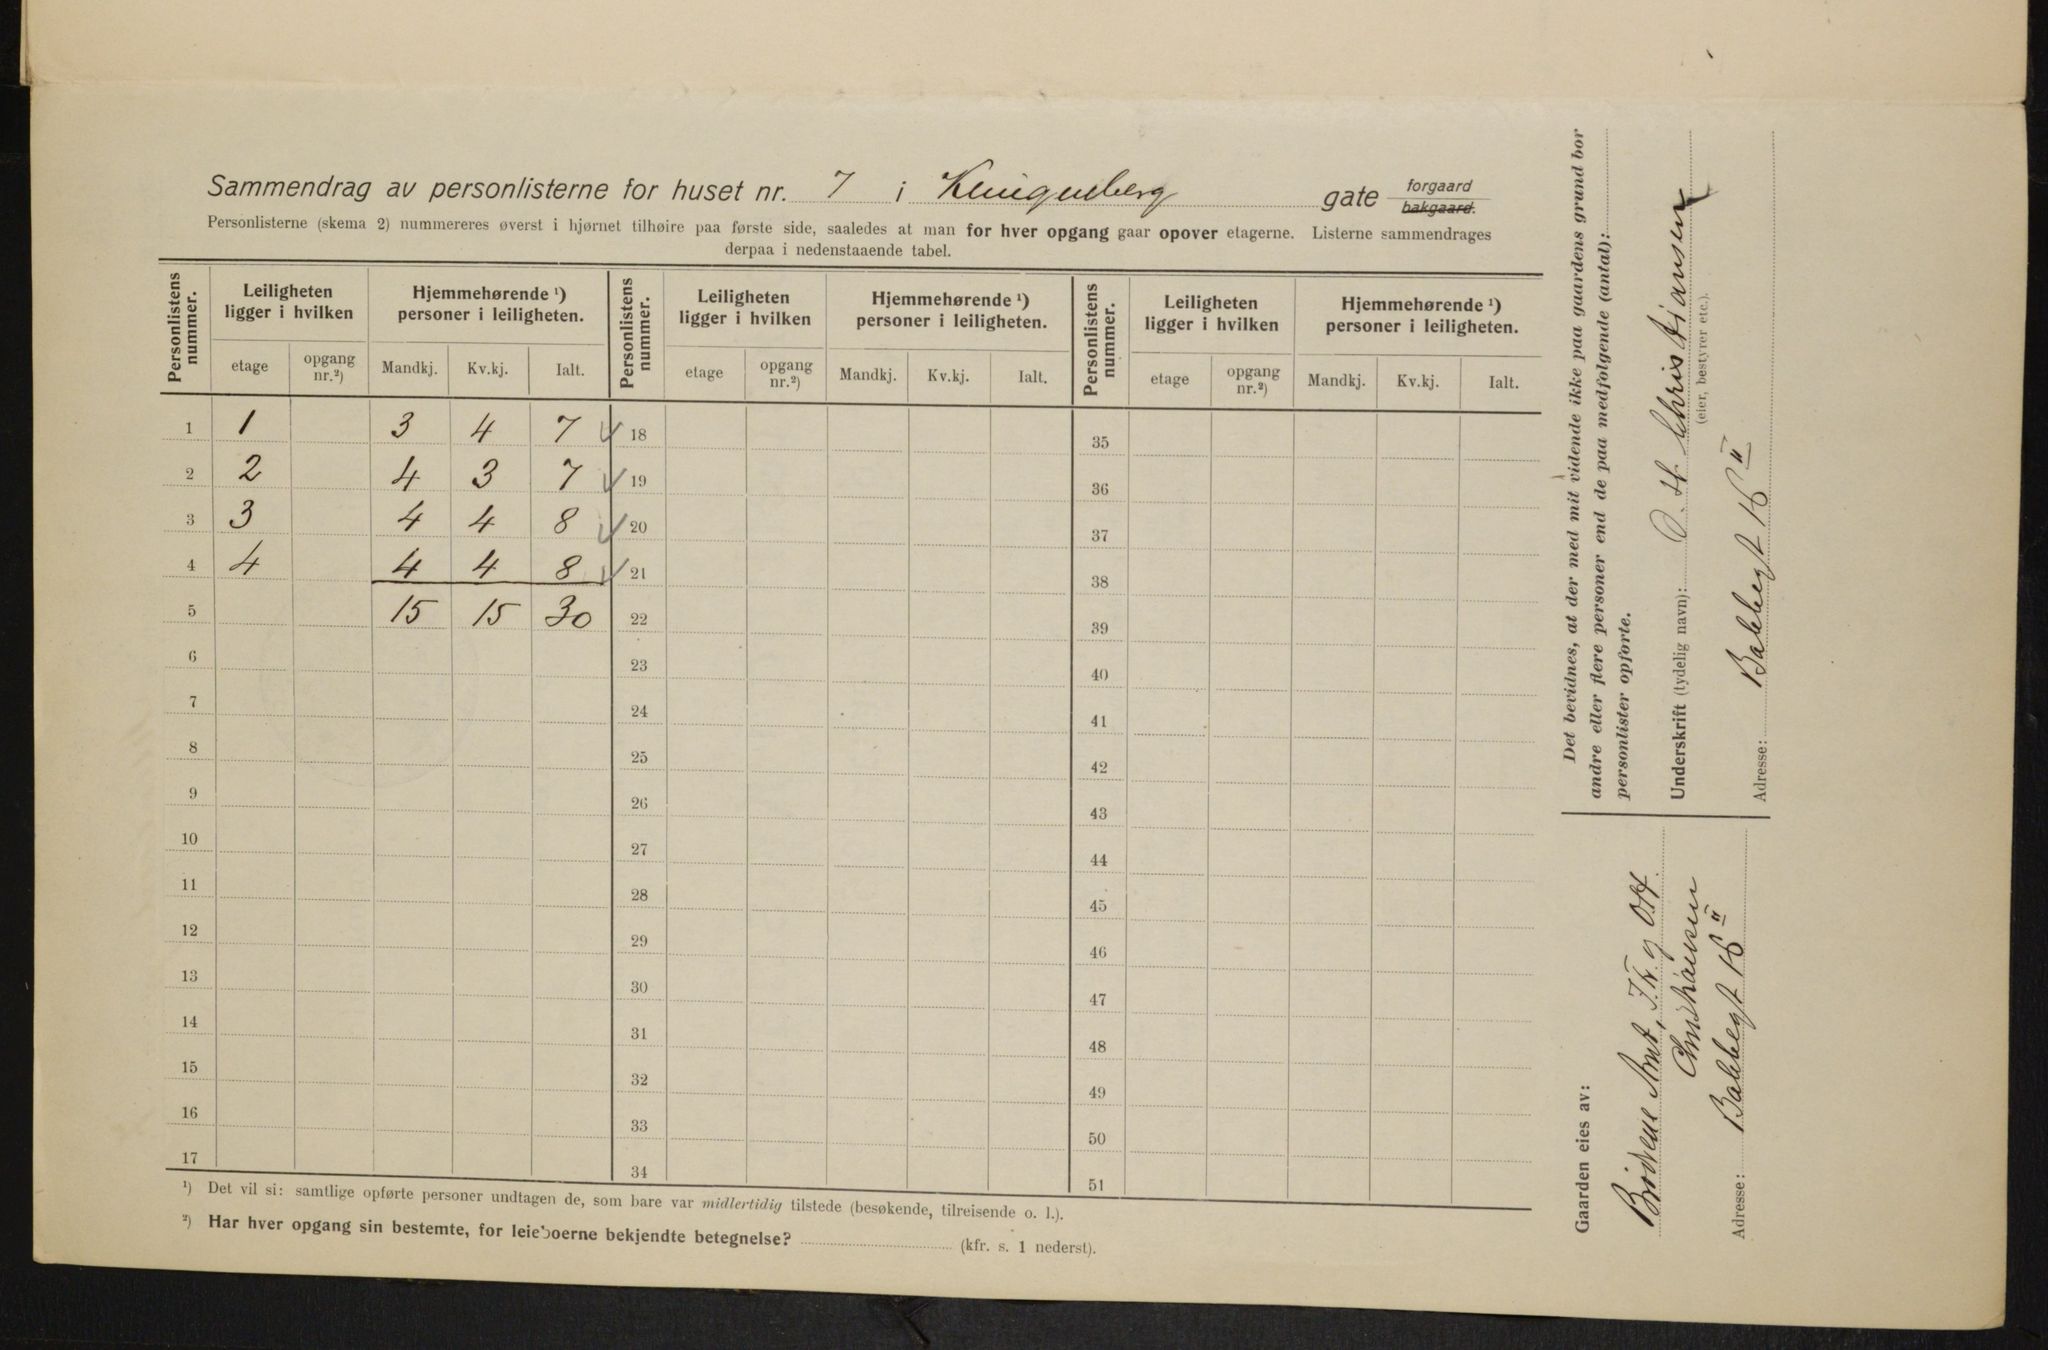 Sammendrag av personlisterne for huset nr. 7 i Klingenberg gate forgaard bakgaard.
Personlisterne (skema 2) nummereres øverst i hjørnet tilhøire paa første side, saaledes at man for hver opgang gaar opover etagerne. Listerne sammendrages
derpaa i nedenstaaende tabel.
Personlistens nummer. Leiligheten ligger i hvilken Hjemmehørende ¹) personer i leiligheten. Personlistens nummer. Leiligheten ligger i hvilken Hjemmehørende ¹) personer i leiligheten. Personlistens nummer. Leiligheten ligger i hvilken Hjemmehørende ¹) personer i leiligheten.
etage opgang nr.²) Mandkj. Kv.kj. Ialt. etage opgang nr.²) Mandkj. Kv.kj. Ialt. etage opgang nr.²) Mandkj. Kv.kj. Ialt.
1 1 3 4 7 18 35
2 2 4 3 7 19 36
3 3 4 4 8 20 37
4 4 4 4 8 21 38
5 15 15 30 22 39
6 23 40
7 24 41
8 25 42
9 26 43
10 27 44
11 28 45
12 29 46
13 30 47
14 31 48
15 32 49
16 33 50
17 34 51
¹) Det vil si: samtlige opførte personer undtagen de, som bare var midlertidig tilstede (besøkende, tilreisende o. l.).
²) Har hver opgang sin bestemte, for leieboerne bekjendte betegnelse? (kfr. s. 1 nederst).
Det bevidnes, at der med mit vidende ikke paa gaardens grund bor
andre eller flere personer end de paa medfølgende (antal):
personlister opførte.
Underskrift (tydelig navn): O. H. Christiansen
(eier, bestyrer etc.).
Adresse:
Gaarden eies av:
Brødrene Arnt, Fr. og Ott.
Christiansen
Adresse: